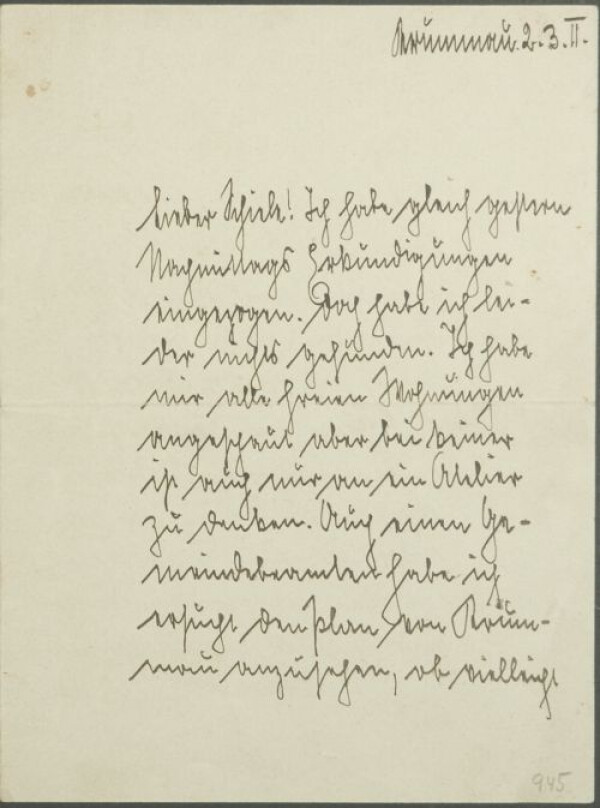 Krummau. 2. 3. II.
Lieber Schiele! Ich habe gleich gestern
Nachmittags Erkundigungen
eingezogen. Doch habe ich lei-
der nichts gefunden. Ich habe
mir alle freien Wohnungen
angeschaut aber bei keiner
ist auch nur an ein Atelier
zu denken. Auch einen Ge-
meindebeamten habe ich
ersucht den Plan von Krum-
mau anzusehen, ob vielleicht
945